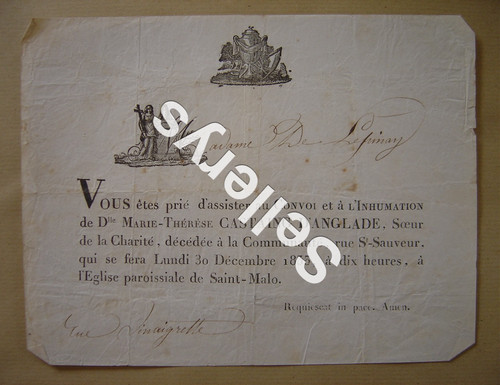 Madame De Lépinay
VOUS êtes prié d'assister au CONVOI et à L'INHUMATION
de Dlle MARIE-THÉRÈSE D'ANGLADE, Sœur
de la Charité, décédée à la rue St-Sauveur,
qui se fera Lundi 30 Décembre à dix heures, à
l'Eglise paroissiale de Saint-Malo.
Requiescat in pace. Amen.
rue Vinaigrette
Sellerys